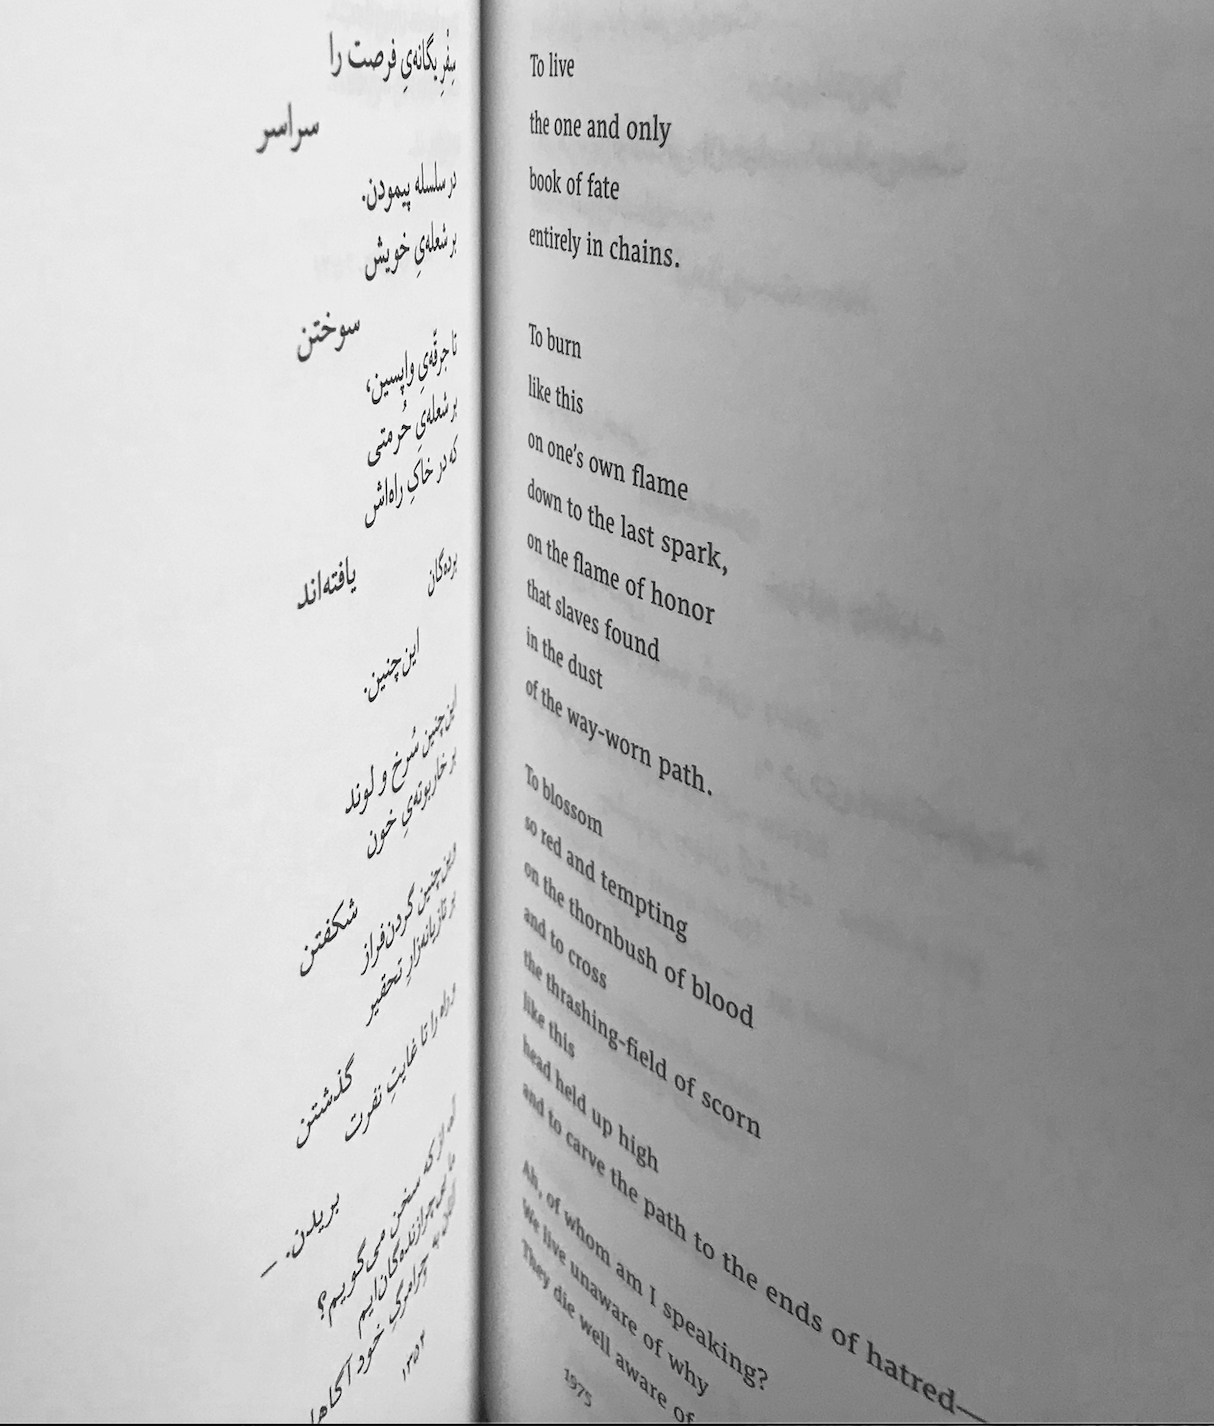 سِفْرِ یگانه‌یِ فرصت را
سراسر
در سلسله پیمودن.
بر شعله‌یِ خویش
سوختن
تا جرقّه‌یِ واپسین،
بر شعله‌یِ حُرمتی
که در خاکِ راه‌اش
برده‌گان
یافته‌اند
این‌چنین.
این‌چنین سُرخ و لوند
بر خاربوته‌یِ خون
شکفتن
وین‌چنین گردن‌فراز
بر تازیانه‌زارِ تحقیر
گذشتن
و راه را تا غایتِ نفرت
بریدن. —
آه از که سخن می‌گویم؟
ما بی‌چرازنده‌گان‌ایم
آنان به چرامرگِ خود
۱۳۵۴
To live
the one and only
book of fate
entirely in chains.
To burn
like this
on one’s own flame
down to the last spark,
on the flame of honor
that slaves found
in the dust
of the way-worn path.
To blossom
so red and tempting
on the thornbush of blood
and to cross
the thrashing-field of scorn
like this
head held up high
and to carve the path to the ends of hatred—
Ah, of whom am I speaking?
We live unaware of why
They die well aware of
1975